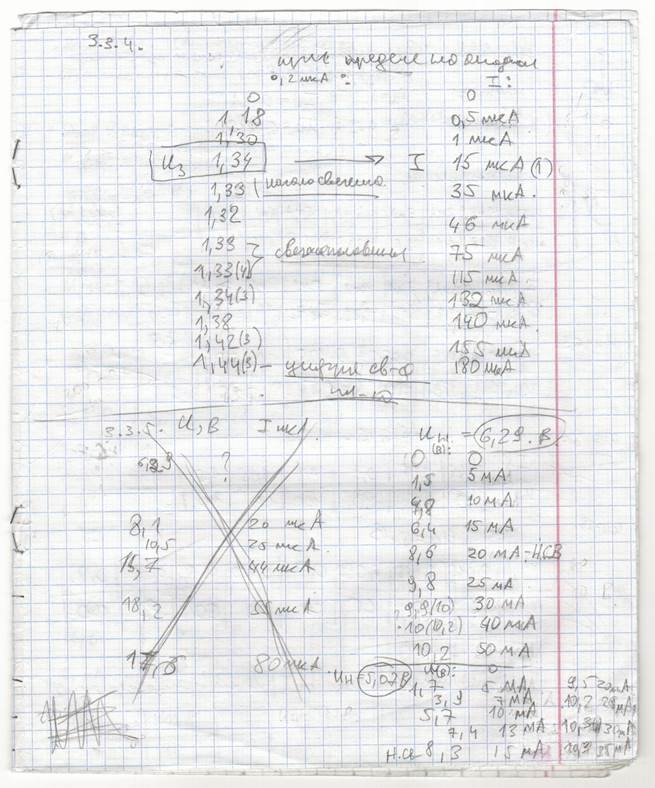 3.3.4.
при пределе
0,2 мкА I:
0 0
1,18 0,5 мкА
1,30 1 мкА
Uз 1,34 → I 15 мкА (1)
1,33 35 мкА.
1,32 46 мкА
1,33 75 мкА
1,33(4) 115 мкА
1,34(3) 132 мкА.
1,38 140 мкА.
1,42(3) 155 мкА
1,44(3) – св-е 180 мкА
3.3.5. U, В I мкА.
?
8,1 20 мкА
10,5 25 мкА
15,7 44 мкА
18,2 55 мкА
80 мкА
Uн. = 6,29 В.
(В):
0 0
1,5 5 мА
4,8 10 мА
6,4 15 мА
8,6 20 мА – Н.СВ
9,8 25 мА
9,9(10) 30 мА
10(10,2) 40 мА
10,2 50 мА
Uн = 5,07В U(В): 0
1,7 5 мА 9,5 20мА
3,9 7 мА 10,2
5,7 10 мА
7,4 13 мА
Н.св 8,3 15 мА 10,3 35 мА